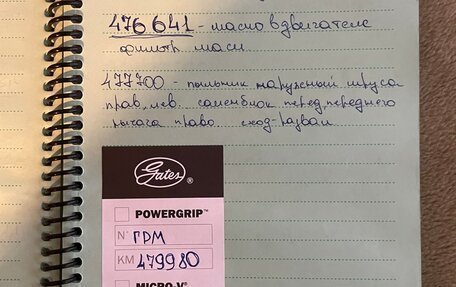 476641 - масло в двигателе
фильтр масл
477700 - пыльник наружный шруса
прав, лев. сайленблок перед, переднего
рычага право сход-развал
Gates®
POWERGRIP™
N° ГРМ
KM 479980
MICRO-V®